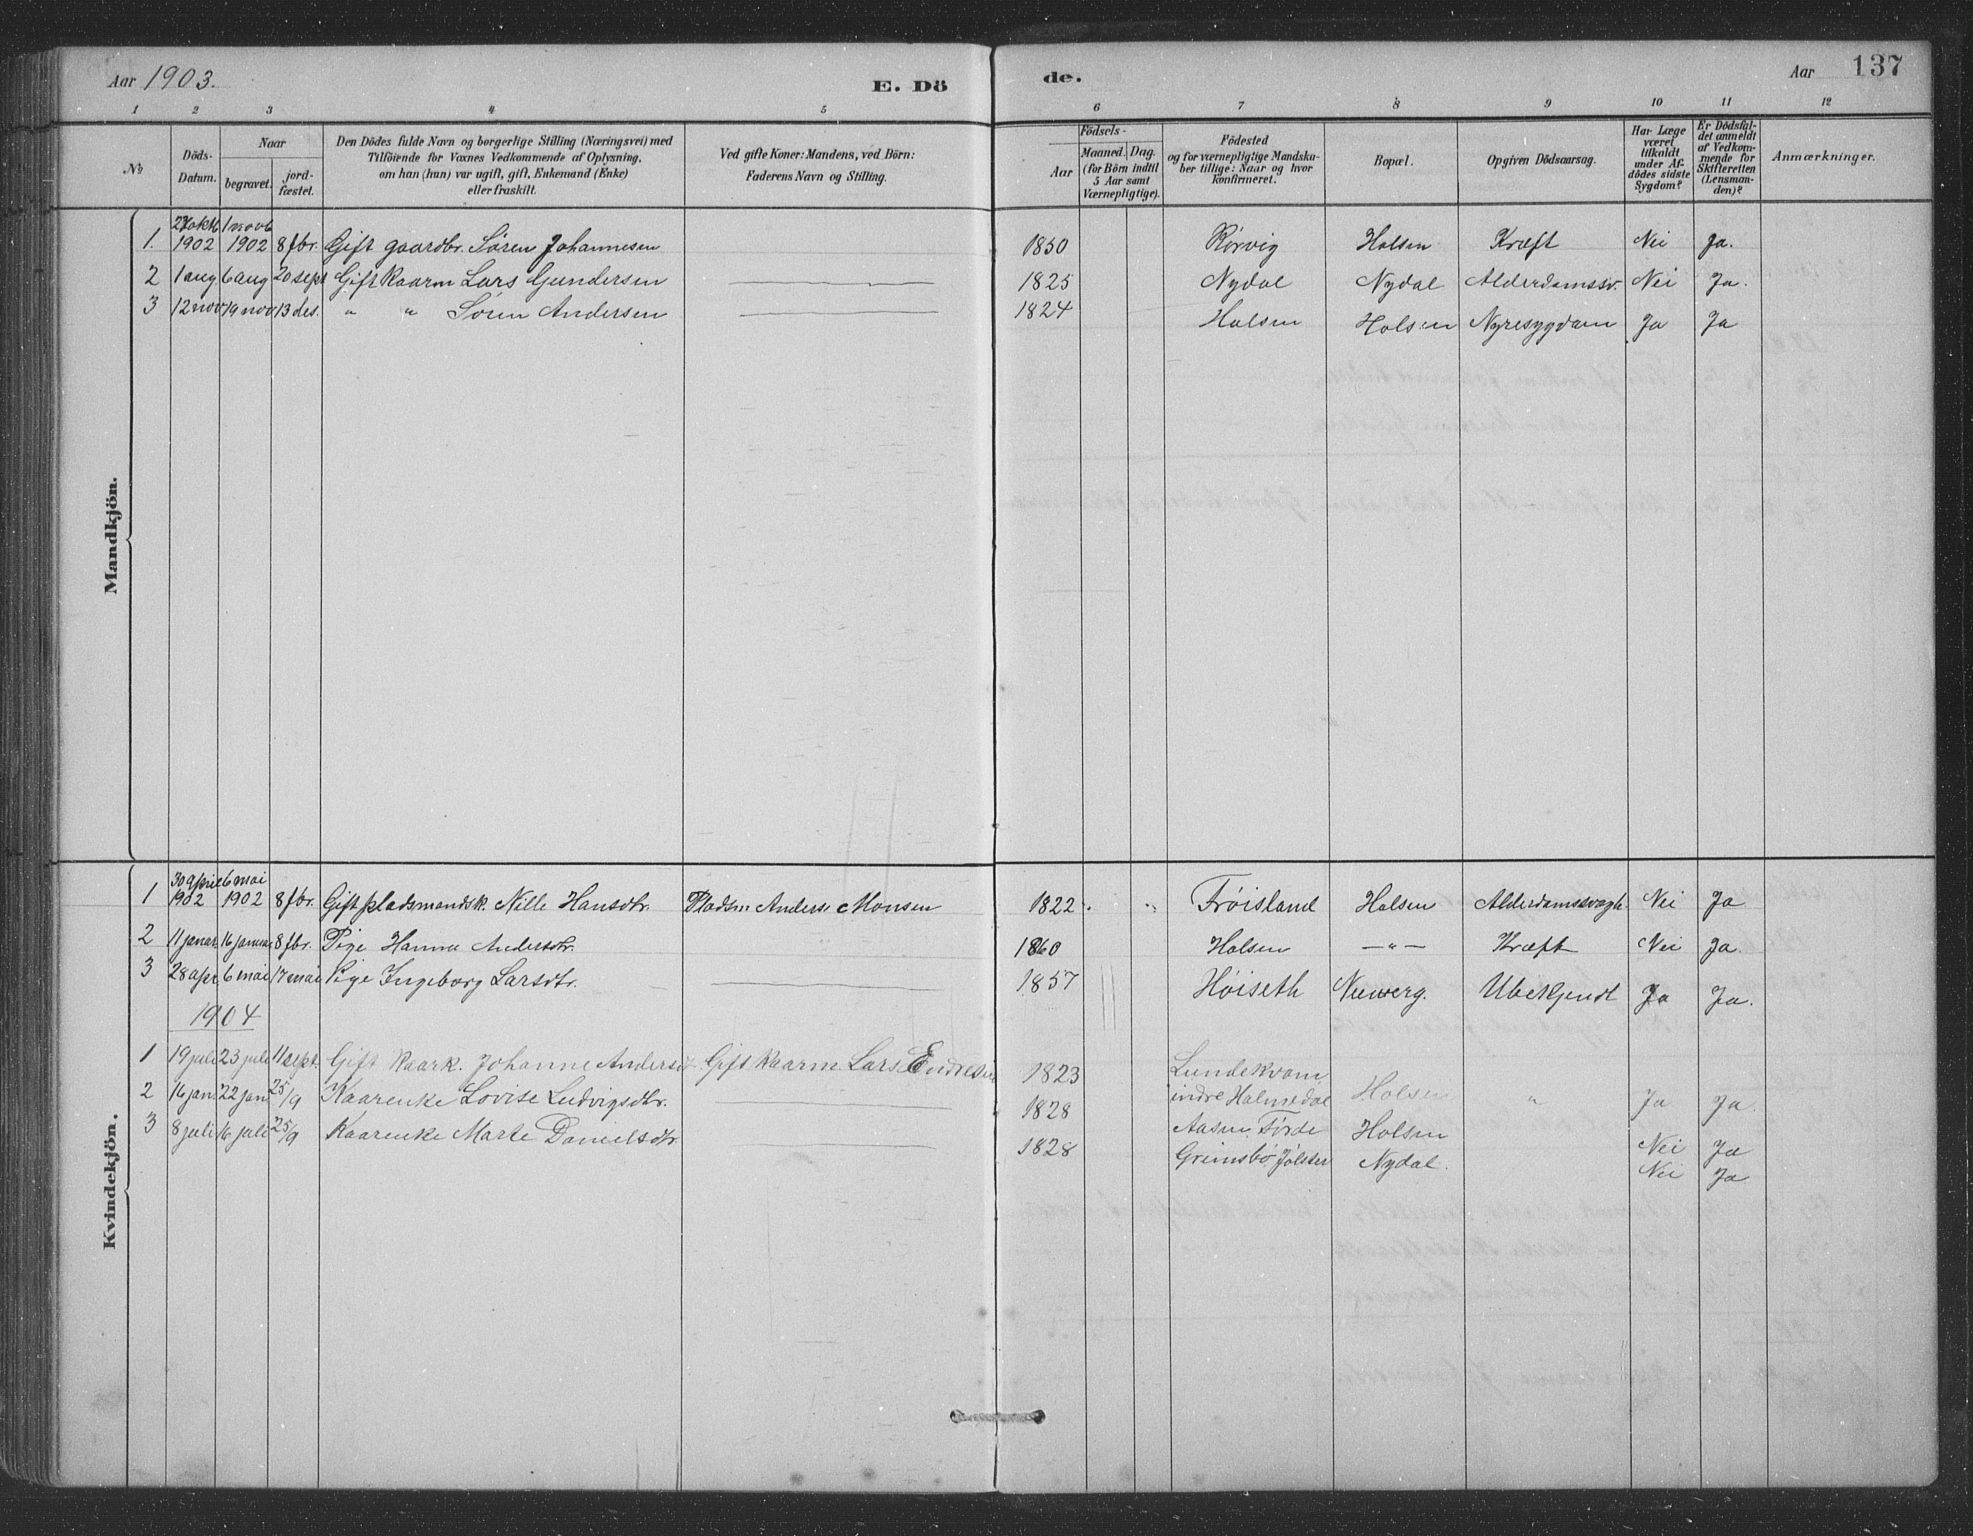 Aar 1903. E. Dö de. Aar 137
1 2 3 4 5 6 7 8 9 10 11 12
№
Döds-Datum.
Naar
begravet.
jordfæstet.
Den Dödes fulde Navn og borgerlige Stilling (Næringsvei) med
Tilföiende for Voxnes Vedkommende af Oplysning,
om han (hun) var ugift, gift, Enkemand (Enke)
eller fraskilt.
Ved gifte Koner: Mandens, ved Börn:
Faderens Navn og Stilling.
Födsels-
Aar
Maaned. Dag.
(for Börn indtil
5 Aar samt
Værnepligtige).
Födested
og for værnepligtige Mandska-
ber tillige: Naar og hvor
konfirmeret.
Bopæl.
Opgiven Dödsaarsag.
Har Læge
været
tilkaldt
under Af-
dödes sidste
Sygdom?
Er Dödsfal-
det anmeldt
af Vedkom-
mende for
Skifteretten
(Lensman-
den)?
Anmærkninger.
Mandkjön.
1. 1902 1 novb 1902 8 fbr. Gift gaardbr. Sören Johannesen 1850 Rørvig Holsen Kræft Nei Ja.
2 1 aug 6 aug 20 sept Gift Kaarm Lars Gundersen 1825 Nydal Nydal Alderdomssv. Nei Ja.
3 12 nov 19 nov 13 des. " " Sören Andersen 1824 Holsen Holsen Nyresygdom Ja Ja
Kvindekjön.
1 30 april 1902 6 mai 1902 8 fbr. Gift pladsmandsk. Nille Hansdtr. Pladsm Anders Monsen 1822 " Trøisland Holsen Alderdomssvagh. Nei Ja
2 11 januar 16 januar 8 fbr. Pige Hanna Andersdtr. 1860 Holsen —"— Kræft Nei Ja.
3 28 apr 6 mai 17 mai Pige Ingeborg Larsdtr. 1857 Høiseth Ubekjendt Ja Ja.
1904
1 19 juli 23 juli 11 sept. Gift Kaark. Johanne Andersd Gift Kaarm Lars Endresen 1823 Lundekvam indre Holmedal Holsen " Ja Ja
2 16 jan. 22 jan 25/9 Kaarenke Lovise Ludvigsdtr. 1828 Aasen Førde Holsen Nei Ja
3 8 juli 16 juli 25/9 Kaarenke Marte Danielsdtr. 1828 Grimsbø Jølster Nydal. Nei Ja